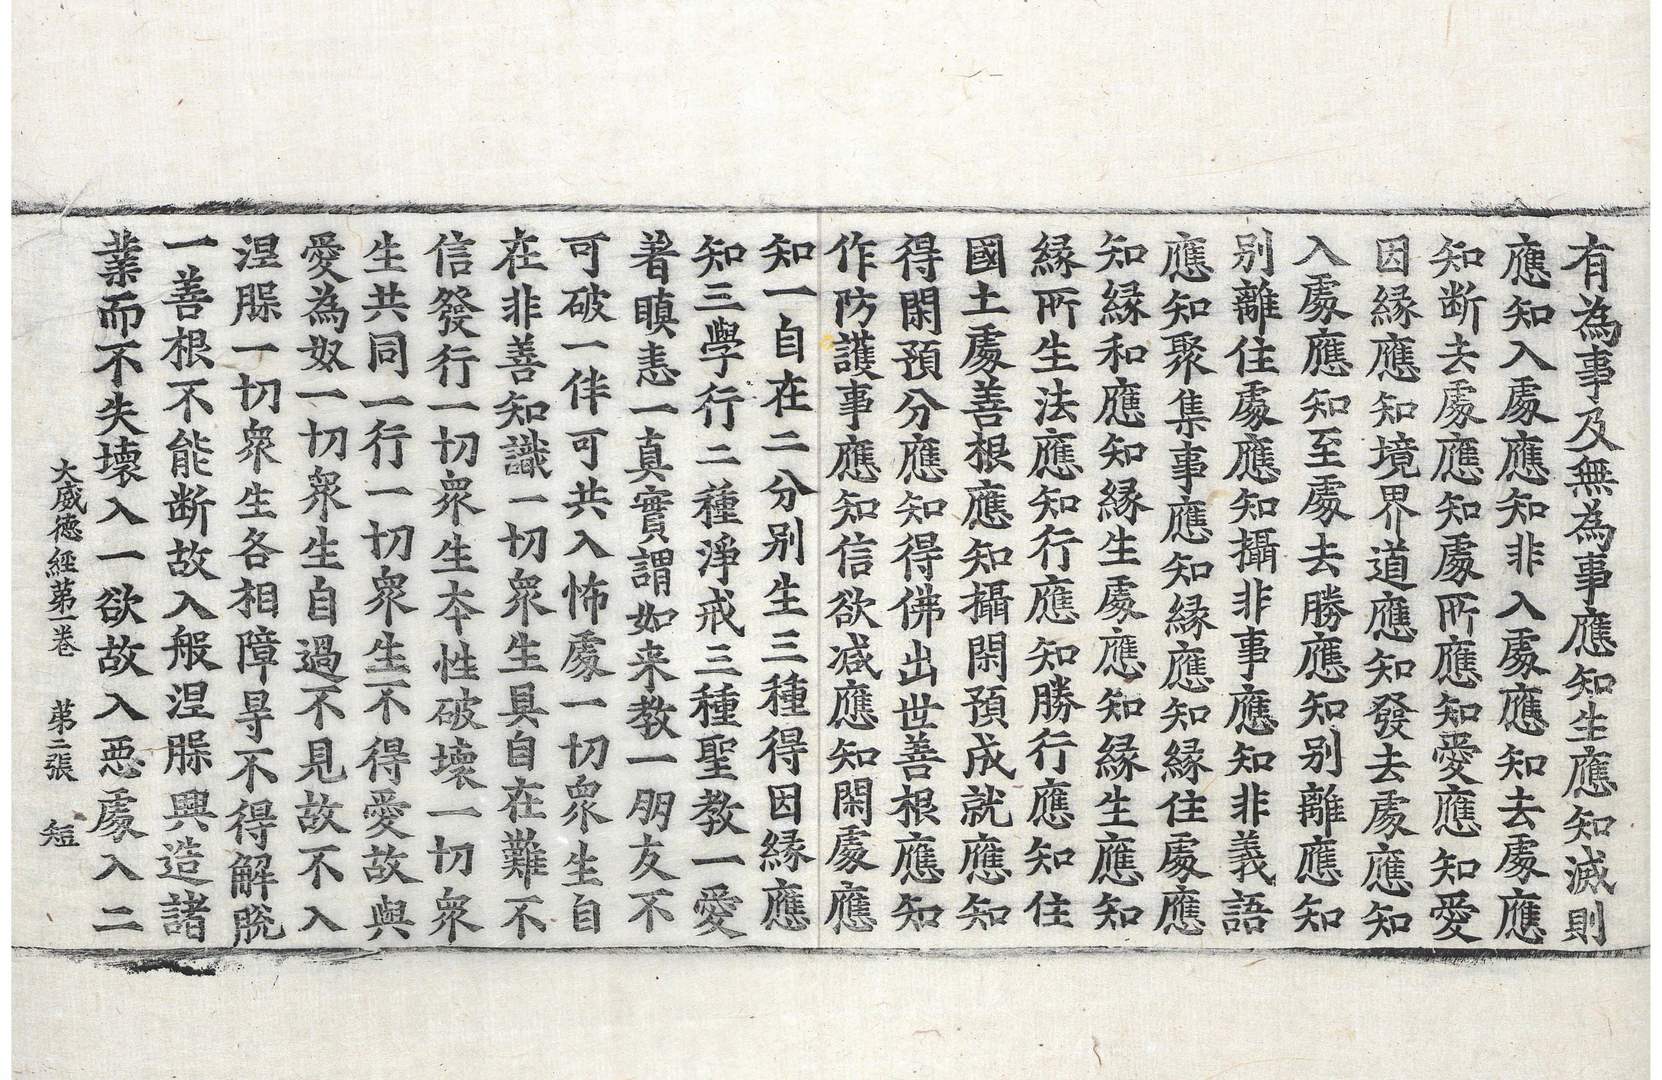 有為事及無為事應知生應知滅則
應知入處應知非入處應知去處應
知断去處應知處所應知愛應知愛
因縁應知境界道應知發去處應知
入處應知至處去勝應知别離應知
别離住處應知攝非事應知非義語
應知聚集事應知縁應知縁住處應
知縁和應知縁生處應知縁生應知
縁所生法應知行應知勝行應知住
國土處善根應知攝閑預成就應知
得閑預分應知得佛出世善根應知
作防護事應知信欲减應知閑處應
知一自在二分别生三種得因縁應
知三學行二種淨戒三種聖教一愛
著瞋恚一真實謂如来教一朋友不
可破一伴可共入怖處一切衆生自
在非善知識一切衆生具自在難不
信發行一切衆生夲性破壊一切衆
生共同一行一切衆生不得愛故與
愛為奴一切衆生自過不見故不入
涅脲一切衆生各相障㝵不得解脫
一善根不能断故入般涅脲興造諸
業而不失壊入一欲故入惡處入二
大威徳經苐一卷　苐二張　短